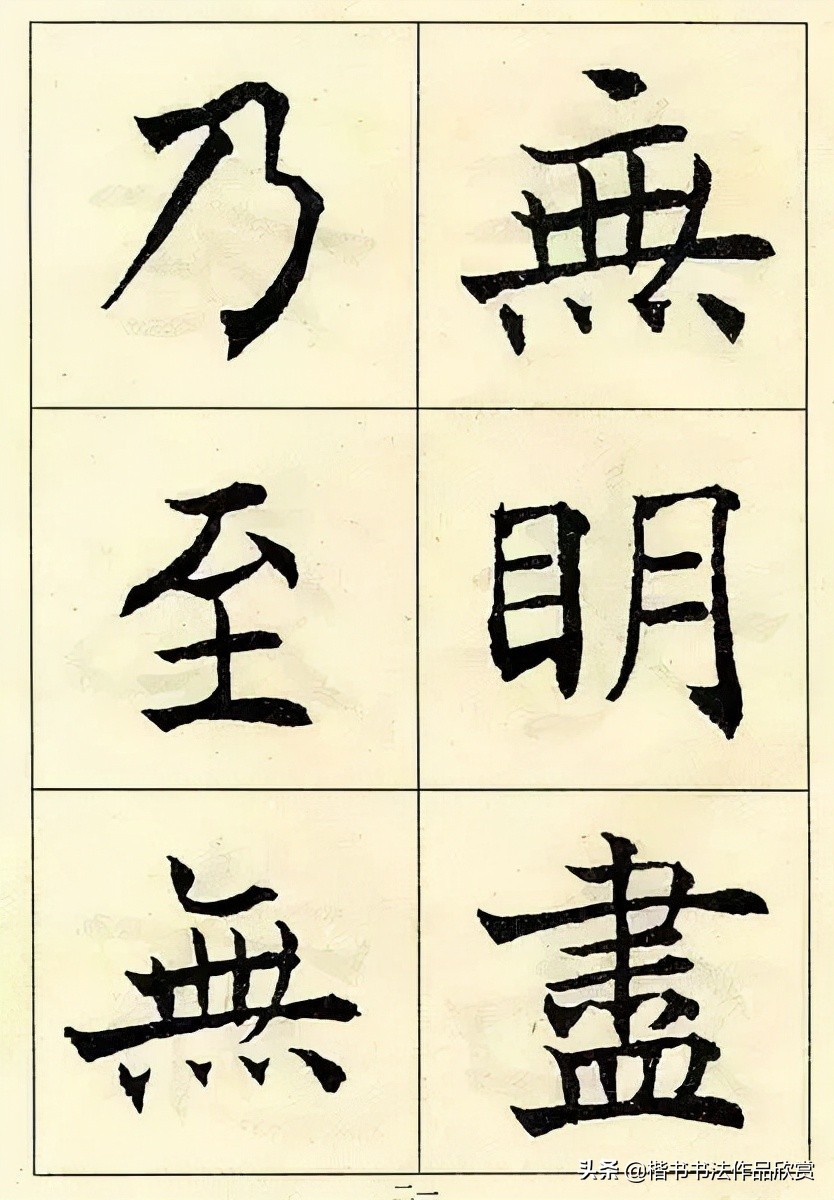 無眀盡
乃至無
二一
头条 @楷书书法作品欣赏